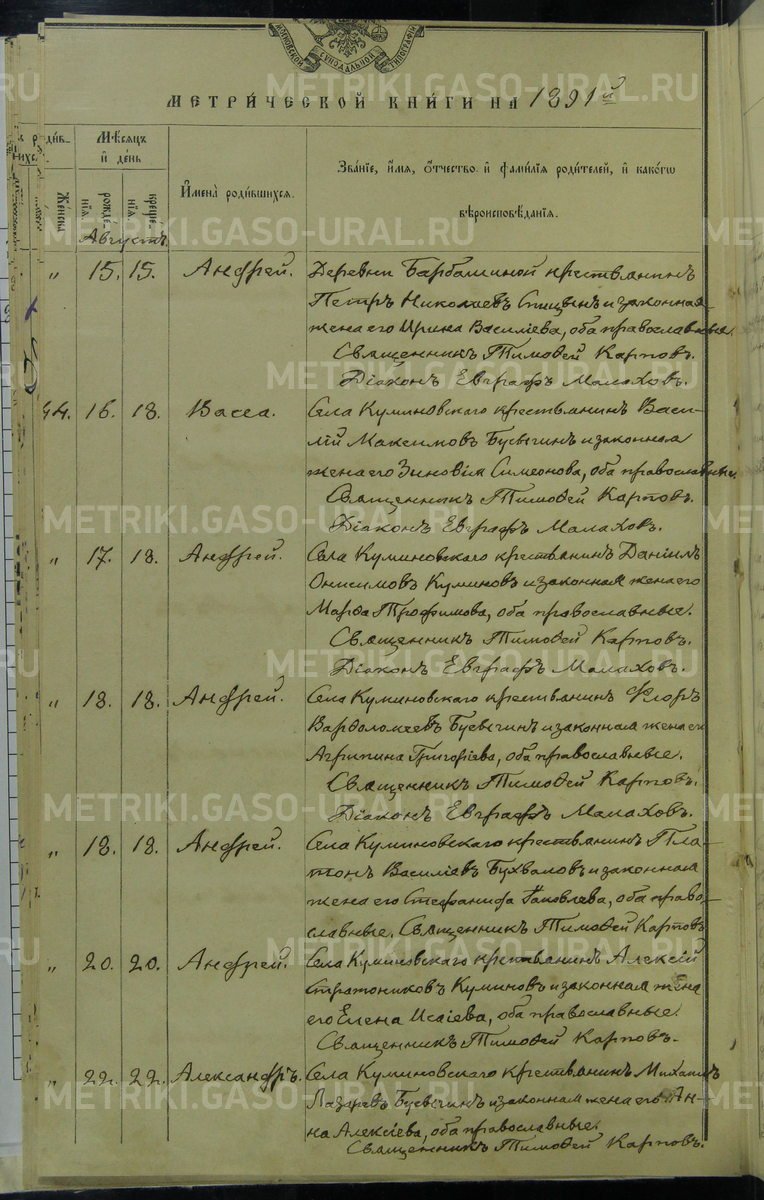 МОСКОВСКОЙ СѴНОДАЛЬНОЙ ТИПОГРАФІИ
МЕТРИ́ЧЕСКОЙ КНИ́ГИ НА 1891й
Мѣсяцъ и҆ де́нь
Же́нска
рожде́нїѧ.
креще́нїѧ.
И҆мена̀ роди́вшихсѧ.
Зва́нїе, и҆́мѧ, ѻ҆́тчество и҆ фами́лїѧ роди́телей, и҆ како́гѡ
вѣроисповѣ́данїѧ.
Августъ.
„ 15. 15. Андрей. Деревни Барбашиной крестьянинъ
Петръ Николаевъ Спицынъ и законная
жена его Ирина Василіева, оба православные.
Священникъ Тимоѳей Карповъ.
Діаконъ Евграфъ Малаховъ.
44. 16. 18. Васса. Села Куминовскаго крестьянинъ Васи-
лій Максимовъ Бусыгинъ и законная
жена его Зиновія Симеонова, оба православные.
Священникъ Тимоѳей Карповъ.
Діаконъ Евграфъ Малаховъ.
„ 17. 18. Андрей. Села Куминовскаго крестьянинъ Даніилъ
Онисимовъ Куминовъ и законная жена его
Марѳа Трофимова, оба православные.
Священникъ Тимоѳей Карповъ.
Діаконъ Евграфъ Малаховъ.
„ 18. 18. Андрей. Села Куминовскаго крестьянинъ Флоръ
Варѳоломеевъ Бусыгинъ и законная жена его
Агрипина Григоріева, оба православные.
Священникъ Тимоѳей Карповъ.
Діаконъ Евграфъ Малаховъ.
„ 18. 18. Андрей. Села Куминовскаго крестьянинъ Пла-
тонъ Василіевъ Бухваловъ и законная
жена его Стефанида Яковлева, оба право-
славные. Священникъ Тимоѳей Карповъ
„ 20. 20. Андрей. Села Куминовскаго крестьянинъ Алексій
Стратониковъ Куминовъ и законная жена
его Елена Исаіева, оба православные.
Священникъ Тимоѳей Карповъ.
„ 22. 22. Александръ. Села Куминовскаго крестьянинъ Михаилъ
Лазаревъ Бусыгинъ и законная жена его Ан-
на Алексіева, оба православные.
Священникъ Тимоѳей Карповъ.
METRIKI.GASO-URAL.RU